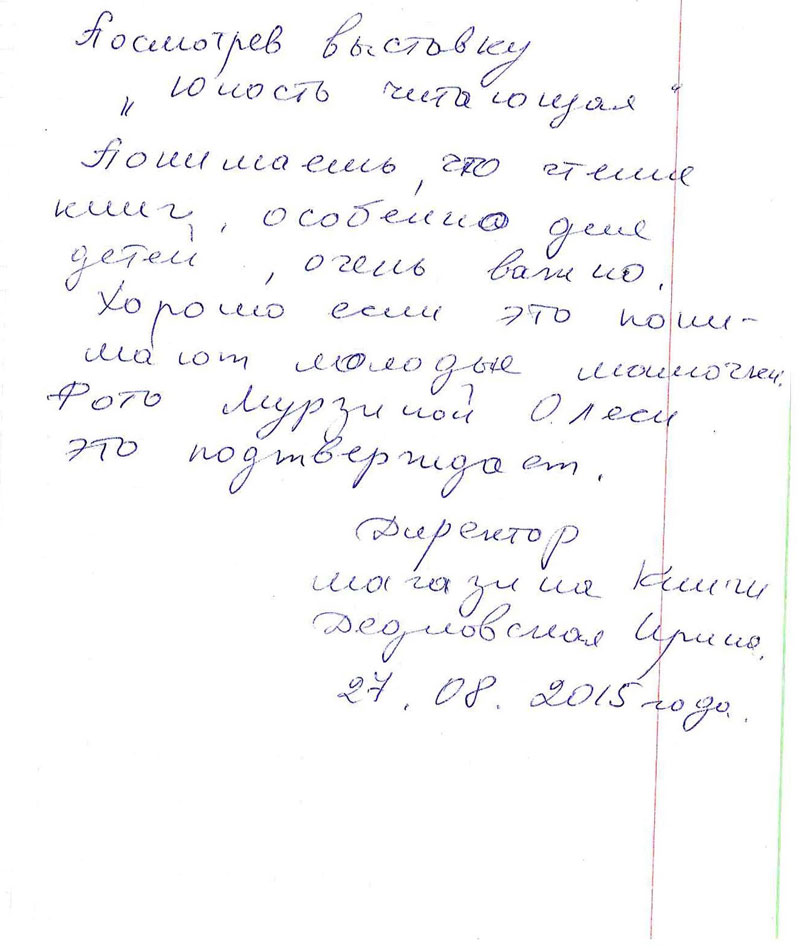 Посмотрев выставку
„Юность читающая“
Понимаешь, что чтение
книг, особенно для
детей, очень важно.
Хорошо если это пони-
мают молодые мамочки.
Фото Мурзиной Олеси
это подтверждает.
Директор
магазина Книги
Ирина.
27.08.2015 года.